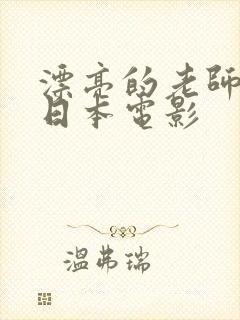 漂亮的老師
日本電影
温弗瑞